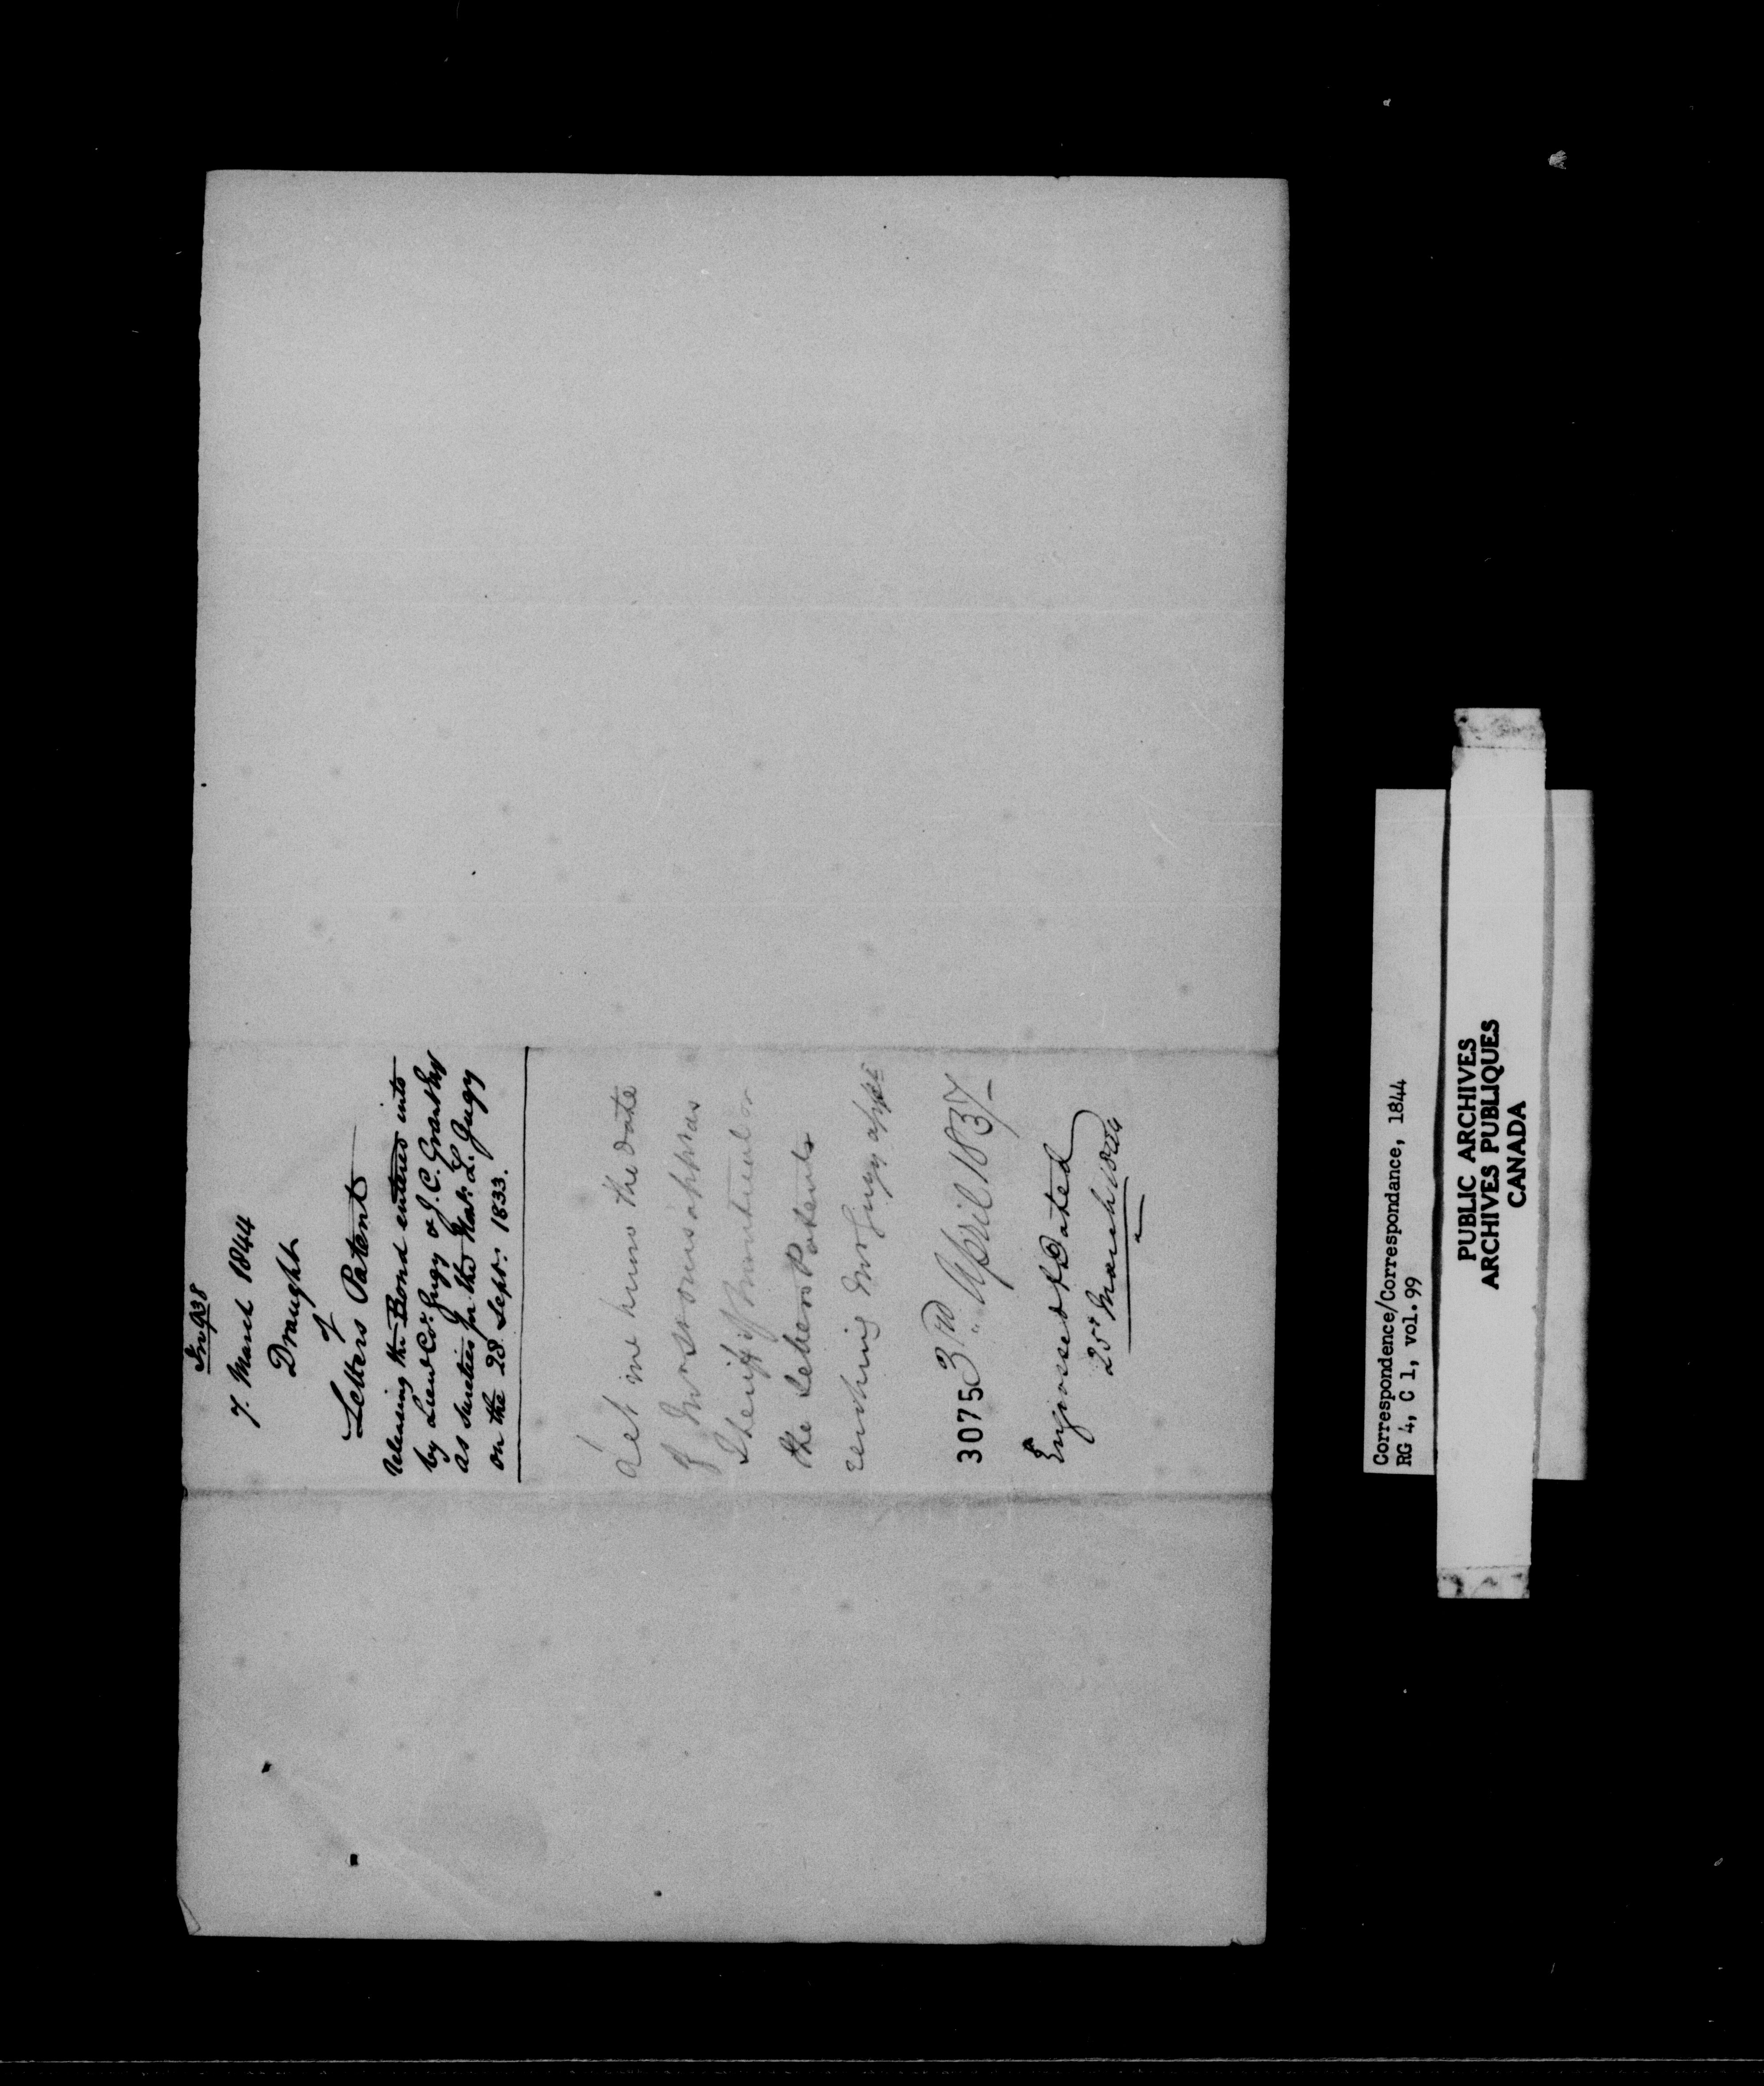 7. March 1844
Draught
of
Letters Patent
releasing the Bond entered into
by Lieut Col. Gugy & J. C. Grant Esq
as sureties for the Hon. L. Gugy
on the 28. Sept. 1833.
Let me know the date
of Mr St Ours appt as
Sheriff of Montreal or
the Letters Patents
revoking Mr Gugy appt
3rd April 1837
3075
Engrossed & Dated
25 March 1844
Correspondence/Correspondance, 1844
RG 4, C 1, vol. 99
PUBLIC ARCHIVES
ARCHIVES PUBLIQUES
CANADA